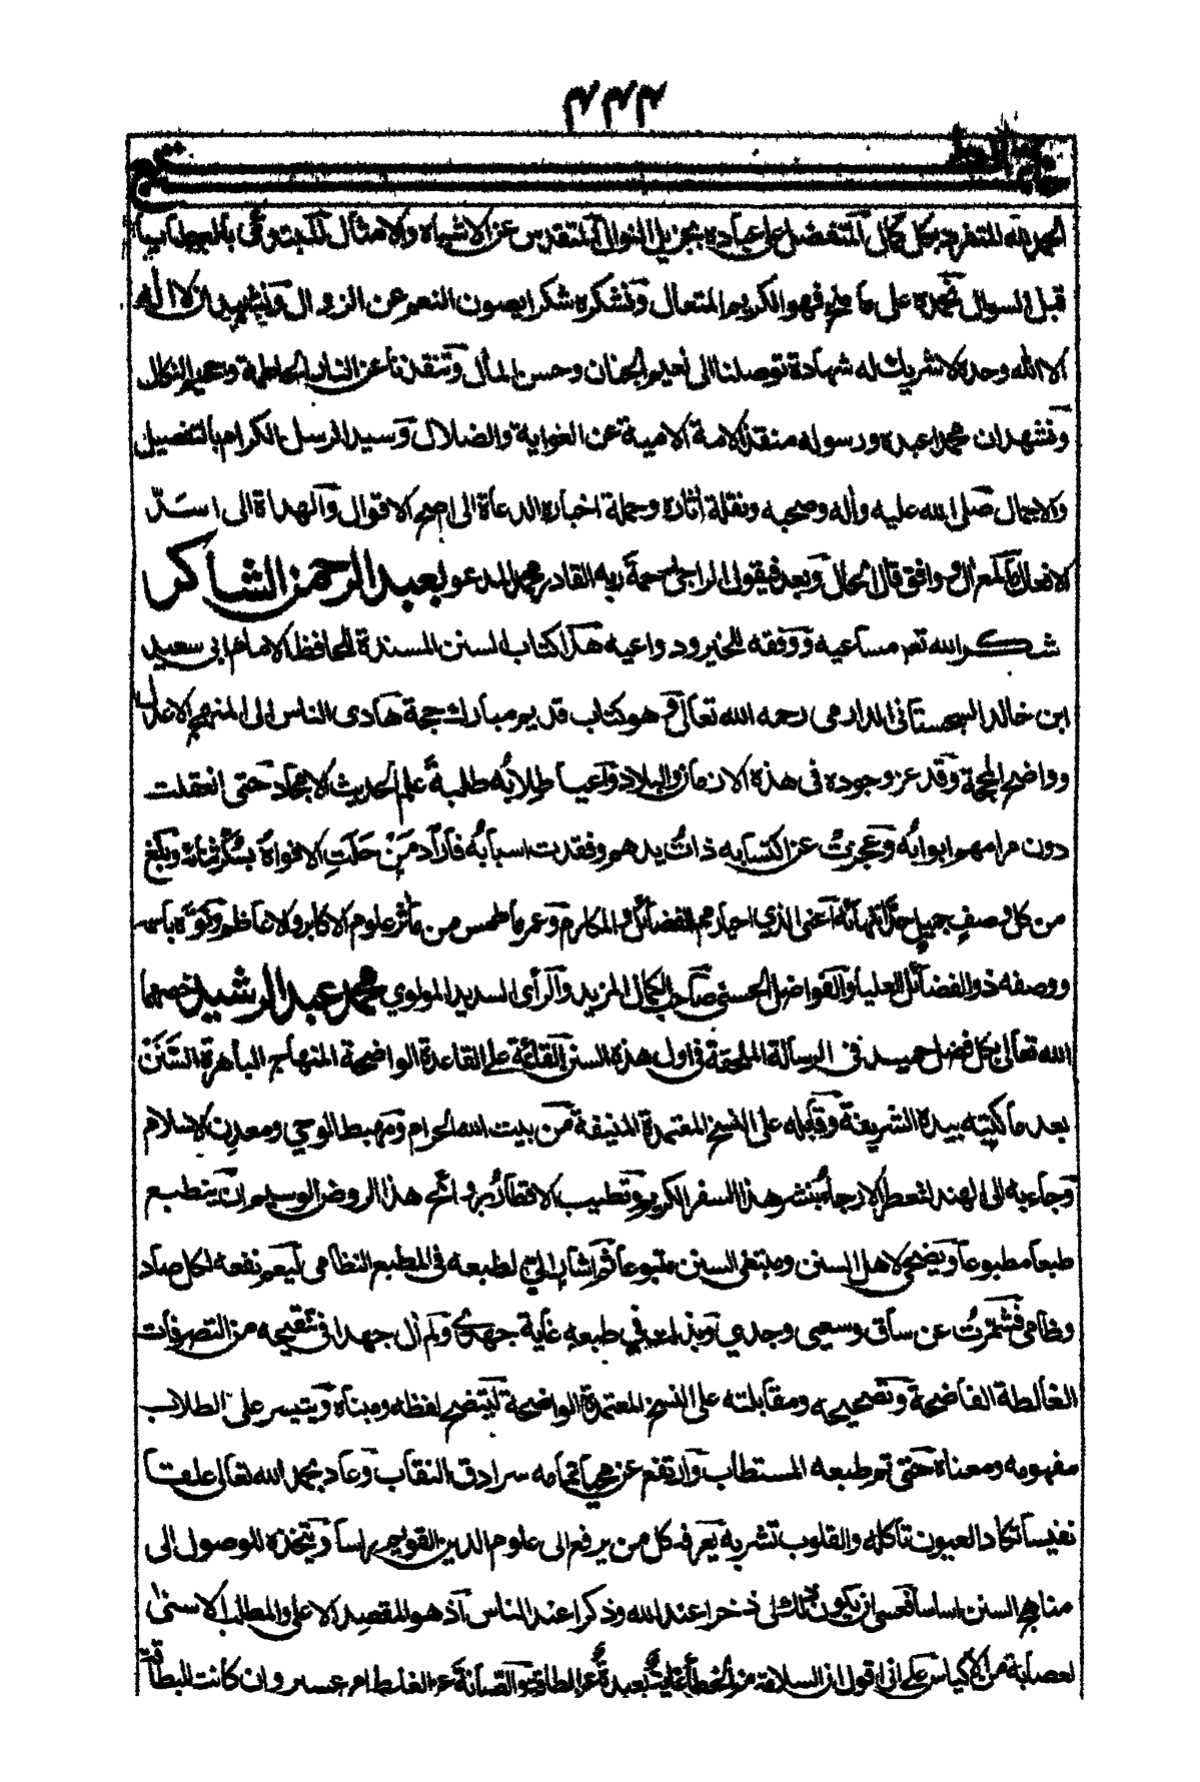 ٤٤٣
خاتمة الطبع
الحمد لله المتفرد بكل كمال المتفضل على عباده بجزيل النوال المتقدس عن الاشباه والامثال المبتدئ بالعطايا
قبل السوال نحمده على ما منح فهو الكريم المتعال ونشكره شكرا يصون النعم عن الزوال ونشهد ان لا اله
الا الله وحده لا شريك له شهادة توصلنا الى نعيم الجنان وحسن المأل وتنقذنا عن النار الحاطمة وجحيم النكال
ونشهد ان محمدا عبده ورسوله منقذ الامة الامية عن الغواية والضلال وسيد الرسل الكرام بالتفصيل
والاجمال صلى الله عليه وأله وصحبه ونقلة أثاره وحملة اخباره الدعاة الى اصح الاقوال والهداة الى اسدّ
الافعال ما لمع ال ووافق قال الحال وبعد فيقول الراجى رحمة ربه القادر محمد المدعو بعبد الرحمن الشاكر
شكر الله تعه مساعيه ووفقه للخير ودواعيه هذا كتاب السنن المسندة للحافظ الامام ابى سعيد
ابن خالد السجستانى الدارمى رحمه الله تعالى وهو كتاب قديم مبارك حجة هادى الناس الى المنهج الاعدل
وواضح المحجة وقد عز وجوده فى هذه الازمان والبلاد واعيا طلابُه طلبةَ علم الحديث الامجاد حتى انعقلت
دون مرامهم ابوابُه وعجزتْ عن اكتسابه ذاتُ يدهم وفقدت اسبابُه فاراد مَنْ حَلَتِ الافواهُ بسُكَّر ثنائه وبلغ
من كل وصفٍ جميلٍ حدَّ انتهائه اعنى الذي احيا رمم الفضائل والمكارم وعمر ما طمس من مأثر علوم الاكابر والاعاظم ونوَّه باسمه
ووصفه ذو الفضائل العليا والفواضل الحسنى صاحب الكمال المزيد والرأى السديد المولوي محمد عبد الرشيد خصهما
الله تعالى بكل فضل حميد فى الرسالة الملحقة فى اول هذه السنن القائمة على القاعدة الواضحة المنهاج الباهرة السَّنَن
بعد ما كتبه بيده الشريفة وقابله على النسخ المعتمدة المنيفة من بيت الله الحرام ومهبط الوحي ومعدن الاسلام
وجاء به الى الهند لتعطر الارجاءُ بنشر هذا السفر الكريم وتطيب الاقطارُ بروائح هذا الروض الوسيم ان ينطبع
طبعا مطبوعا ويضحى لاهل السنن ومبتغى السنن متبوعا ثم اشار اليّ لطبعه فى المطبع النظامى ليعم نفعه لكل صاد
وظامى فشمّرتُ عن ساق وسعى وجدي وبذلت فى طبعه غاية جهدي ولم أل جهدا فى تنقيحه من التصرفات
الغالطة الفاضحة وتصحيحه ومقابلته على النسخ المعتمدة الواضحة ليتضح لفظه ومبناه ويتيسر على الطلاب
مفهومه ومعناه حتى تم طبعه المستطاب وارتفع عن محيا تمامه سرادق النقاب وعاد بحمد الله تعالى علقا
نفيسا تكاد العيون تأكله والقلوب تشربه يعرفه كل من يرفع الى علوم الدين القويم راسا ويتخذه للوصول الى
مناهج السنن اساسا فعسى ان يكون ذلك لى ذخرا عند الله وذكرا عند الناس اذ هو المقصد الاعلى والمطلب الاسنى
لعصابة من الاكياس على انى اقول ان السلامة من الخطأ غايةٌ بعيدةٌ عن الطاقة والصيانةَ عن الغلط امر عسير وان كانت البطاقة